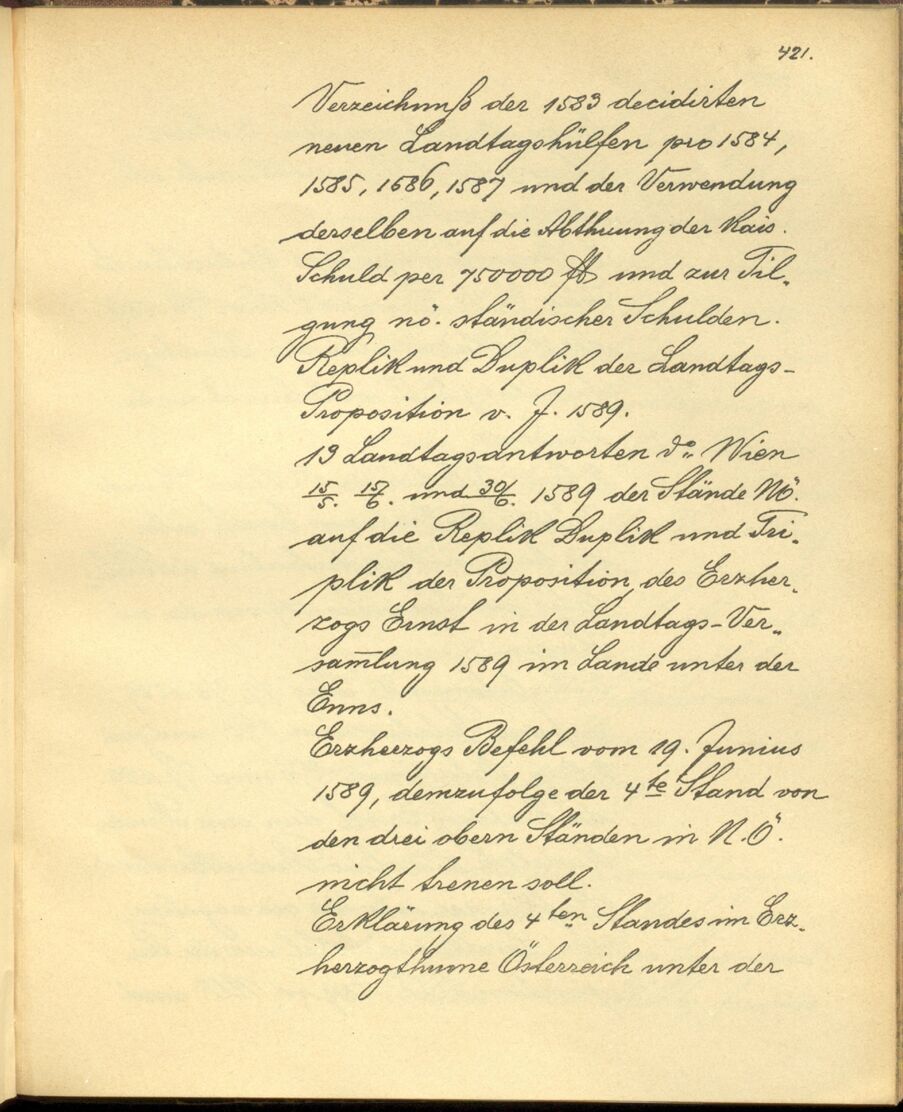 421.
Verzeichnuß der 1583 decidirten
neuen Landtagshülfen pro 1584,
1585, 1686, 1587 und der Verwendung
derselben auf die Abthuung der Kais.
Schuld per 750000 fl und zur Til„
gung nö. ständischer Schulden.
Replik und Duplik der Landtags-
Proposition v. J. 1589.
13 Landtagsantworten do Wien
15/5. 15/6. und 30/6. 1589 der Stände NÖ.
auf die Replik Duplik und Tri„
plik der Proposition des Erzher„
zogs Ernst in der Landtags-Ver„
sam̅lung 1589 im Lande unter der
Enns.
Erzherzogs Befehl vom 19. Junius
1589, demzufolge der 4te Stand von
den drei obern Ständen in N.Ö.
nicht trenen soll.
Erklärung des 4ten Standes im Erz„
herzogthume Österreich unter der